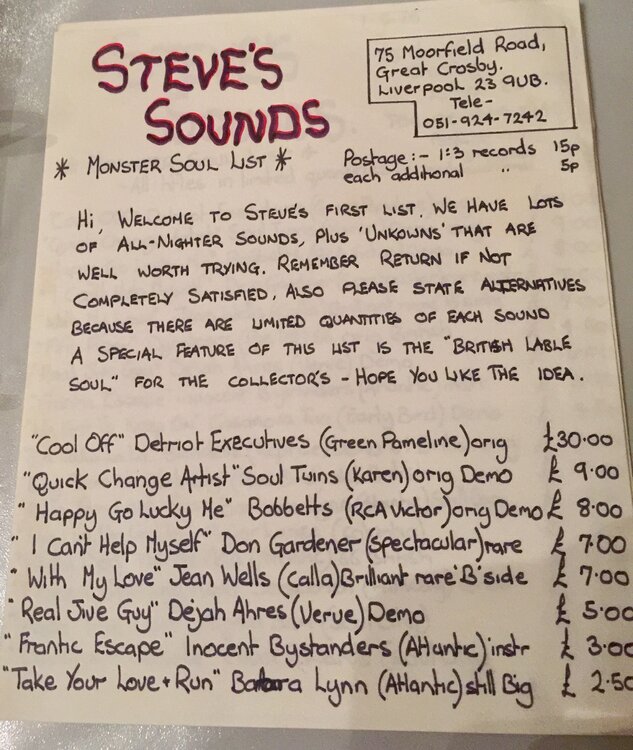 STEVE'S
SOUNDS
75 Moorfield Road,
Great Crosby.
Liverpool 23 9UB.
Tele-
051-924-7242
* MONSTER SOUL LIST *
Postage:- 1:3 records 15p
each additional " 5p
Hi, WELCOME TO STEVE'S FIRST LIST. WE HAVE LOTS
OF ALL-NIGHTER SOUNDS, PLUS 'UNKOWNS' THAT ARE
WELL WORTH TRYING. REMEMBER RETURN IF NOT
COMPLETELY SATISFIED, ALSO PLEASE STATE ALTERNATIVES
BECAUSE THERE ARE LIMITED QUANTITIES OF EACH SOUND
A SPECIAL FEATURE OF THIS LIST IS THE "BRITISH LABLE
SOUL" FOR THE COLLECTOR'S - HOPE YOU LIKE THE IDEA.
"Cool Off" Detriot Executives (Green Pameline) orig £30.00
"Quick Change Artist" Soul Twins (Karen) orig Demo £ 9.00
"Happy Go Lucky Me" Bobbetts (RCA Victor) orig Demo £ 8.00
"I Can't Help Myself" Don Gardener (Spectacular) rare £ 7.00
"With My Love" Jean Wells (Calla) Brilliant rare 'B' side £ 7.00
"Real Jive Guy" Dejah Ahres (Verve) Demo £ 5.00
"Frantic Escape" Inocent Bystanders (Atlantic) instr £ 3.00
"Take Your Love + Run" Barbara Lynn (Atlantic) still Big £ 2.50